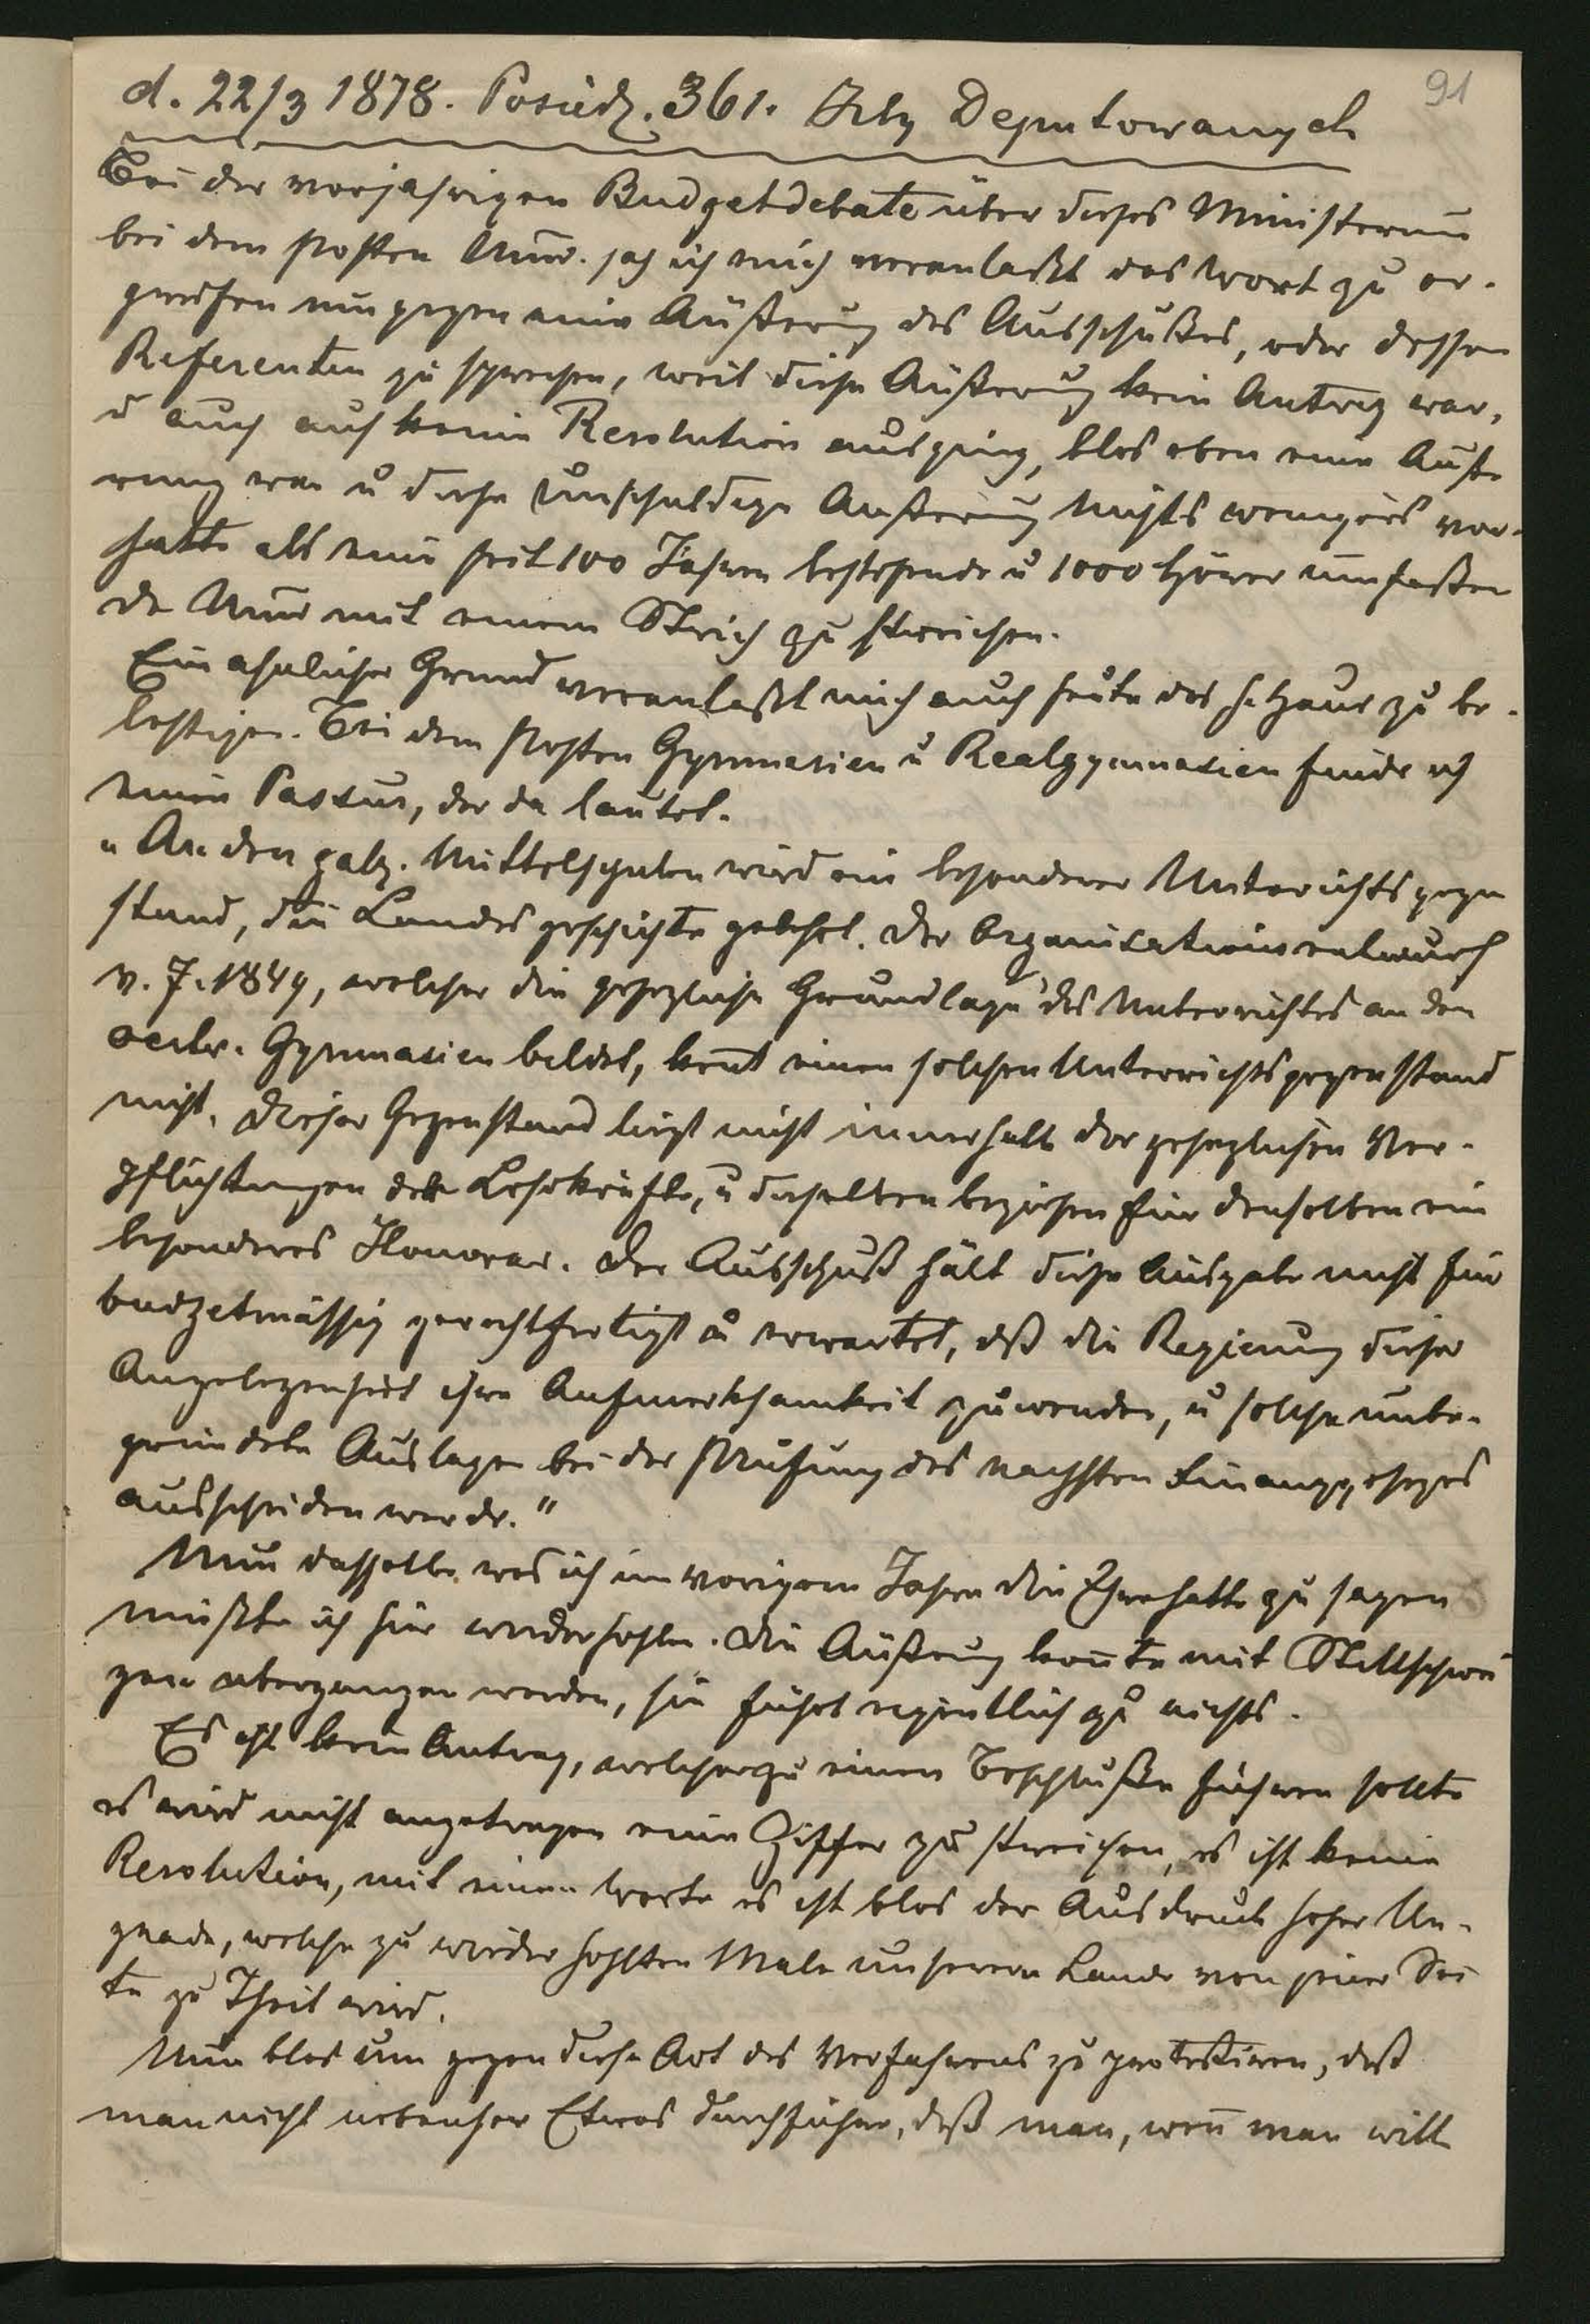 91
d. 22/3 1878. Posiedz. 361. Izby Deputowanych
Bei der vorjahrigen Budgetdebate über dieses Ministerium
bei dem Posten Univ. sah ich mich veranlaßt das Wort zu er-
greifen um gegen eine Äußerung des Ausschußes, oder dessen
Referenten zu sprechen, weil diese Äußerung kein Antrag war,
u auch auf keine Resolution ausging, blos eben eine Äuße
rung war u diese unschuldige Äußerung Nichts weniger vor-
hatte als eine seit 100 Jahren bestehende u 1000 Hörer umfaßen
de Univ mit einem Strich zu streichen.
Ein ahnlicher Grund veranlaßt mich auch heute das h. Haus zu be-
lästigen. Bei dem Posten Gymnasien u Realgymnasien finde ich
einen Passus, der da lautet.
„An den galiz. Mittelschulen wird ein besonderer Unterrichtsgegen
stand, die Landesgeschichte gelehrt. Der Organisationsentwurf
v. J. 1849, welcher die gesezliche Grundlage des Unterrichtes an den
oestr. Gymnasien bildet, kennt einen solchen Unterrichtsgegenstand
nicht. Dieser Gegenstand liegt nicht innerhalb der gesezlichen Ver-
pflichtungen der Lehrkräfte, u dieselben beziehen für denselben ein
besonderes Honorar. Der Ausschuß hält diese Ausgabe nicht für
budgetmässig gerechtfertigt u erwartet, daß die Regierung dieser
Angelegenheit ihre Aufmerksamkeit zuwenden, u solche unbe-
gründete Auslagen bei der Prüfung des nachsten Finanzgesezes
ausscheiden werde."
Nun dasselbe was ich im vorigem Jahre die Ehre hatte zu sagen
müßte ich hier wiederhohlen. Die Äußrung konnte mit Stillschwei
gen übergangen werden, sie führt eigentlich zu nichts.
Es ist kein Antrag, welcher zu einem Beschluße führen sollte
es wird nicht angetragen eine Ziffer zu streichen, es ist keine
Resolution, mit einem Worte es ist blos der Ausdruck hoher Un-
gnade, welche zu wieder hohlten Male unserem Lande von jener Sei
te zu Theil wird.
Nun blos um gegen diese Art des Verfahrens zu protestiren, daß
man nicht nebenher Etwas durchführe, daß man, wenn man will